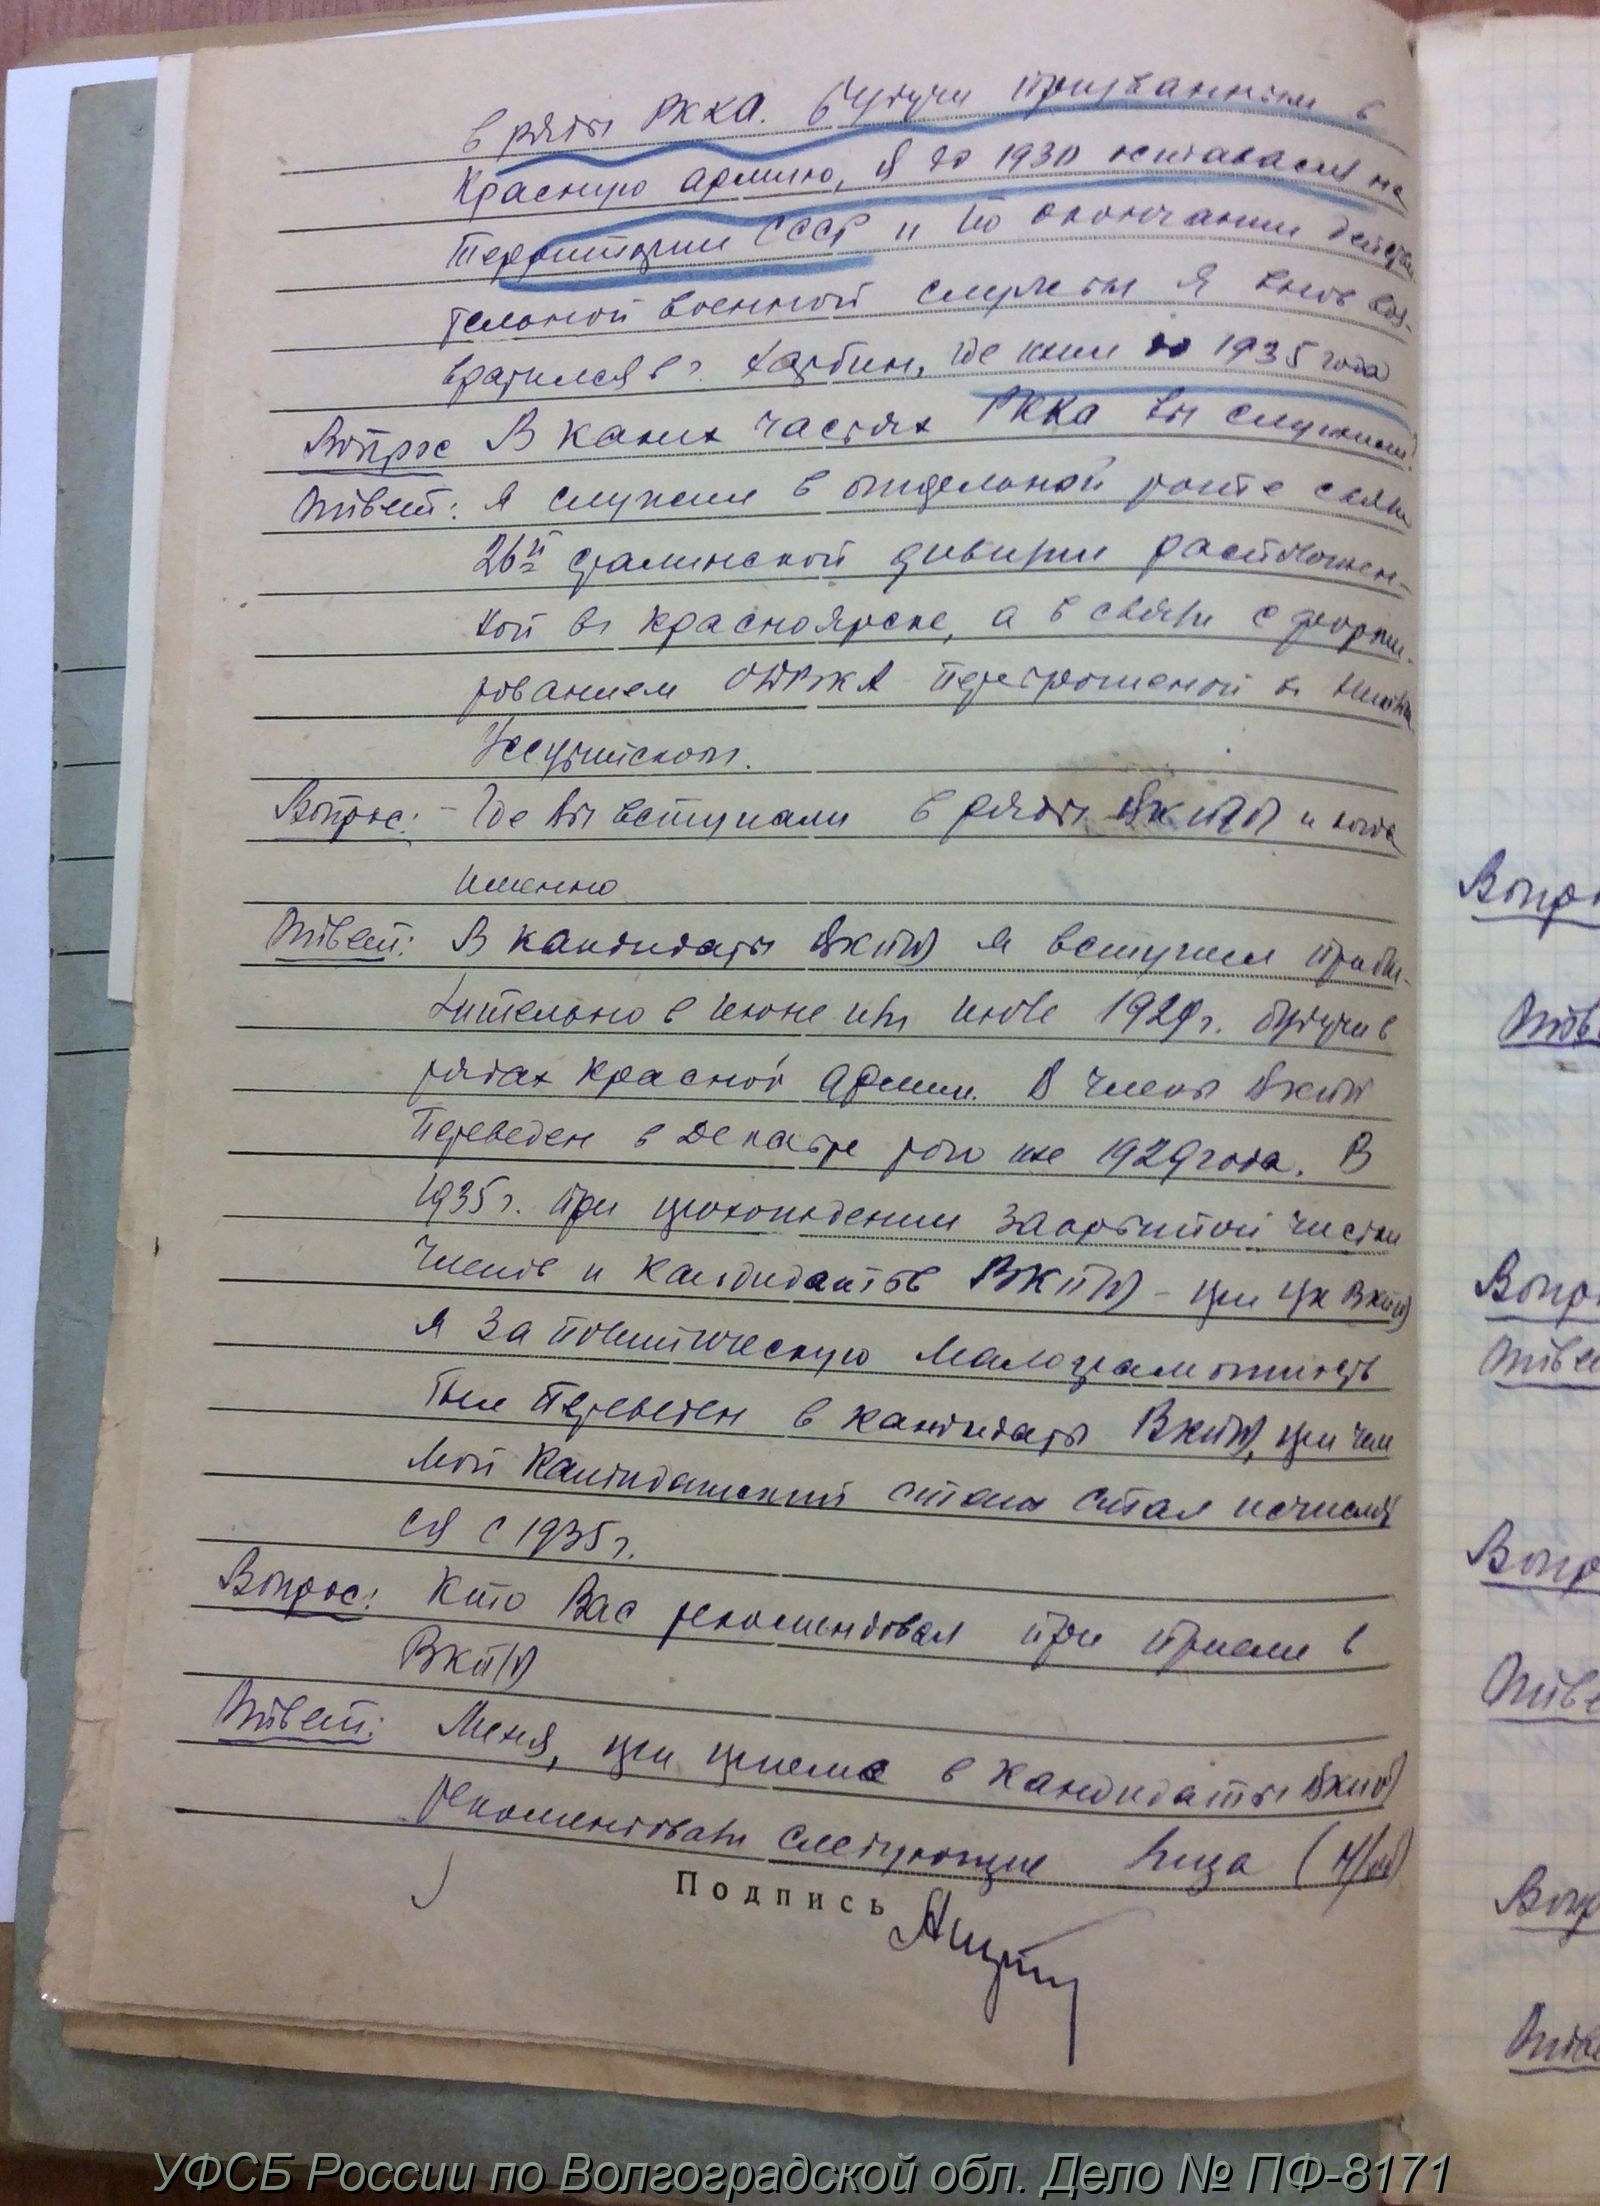 в ряды РККА. Будучи призванным в
Красную армию, я до 1930 оставался на
территории СССР и по окончании действи
тельной военной службы я вновь воз-
вратился в г. Харбин, где жил до 1935 года
Вопрос В каких частях РККА вы служили?
Ответ: Я служил в отдельной роте связи
26й сталинской дивизии расположен-
ной в Красноярске, а в связи с форми-
рованием ОДВКА переброшеной в Никольск
Уссурийском.
Вопрос: - Где вы вступали в ряды ВКП(б) и когда
именно
Ответ: В кандидаты ВКП(б) я вступил прибли-
зительно в июне или июле 1929г. будучи в
рядах Красной Армии. В члены ВКП(б)
переведен в декабре того же 1929 года. В
1935г. при прохождении закрытой чистки
членов и кандидатов ВКП(б) - при ЦК ВКП(б)
я за политическую малограмотность
был переведен в кандидаты ВКП(б), при чем
мой кандидатский стаж стал исчислят
ся с 1935г.
Вопрос: Кто Вас рекомендовал при приеме в
ВКП(б)
Ответ: Меня, при приеме в кандидаты ВКП(б)
рекомендовали следующие лица (чл.
Подпись
Вопро
Отв
Вопро
Отве
Вопр
Отве
Вопр
Отве
УФСБ России по Волгоградской обл. Дело № ПФ-8171